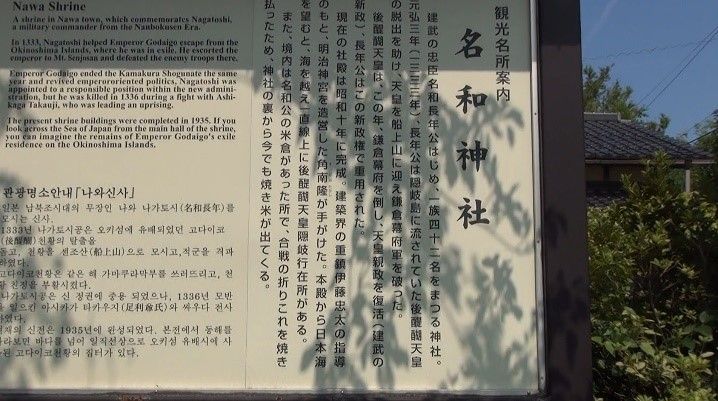 観光名所案内
名和神社
建武の忠臣名和長年公はじめ、一族四十二名をまつる神社。
元弘三年(一三三三年)、長年公は隠岐島に流されていた後醍醐天皇
の脱出を助け、天皇を船上山に迎え鎌倉幕府軍を破った。
後醍醐天皇は、この年、鎌倉幕府を倒し、天皇親政を復活(建武の
新政)、長年公はこの新政権で重用された。
現在の社殿は昭和十年に完成。建築界の重鎮伊藤忠太の指導
のもと、明治神宮を造営した角南隆が手がけた。本殿から日本海
を望むと、海を越え一直線上に後醍醐天皇隠岐行在所がある。
また、境内は名和公の米倉があった所で、合戦の折りこれを焼き
払ったため、神社の裏から今でも焼き米が出てくる。
Nawa Shrine
A shrine in Nawa town, which commemorates Nagatoshi,
a military commander from the Nanbokusen Era.
In 1333, Nagatoshi helped Emperor Godaigo escape from the
Okinoshima Islands, where he was in exile. He escorted the
emperor to Mt. Senjosan and defeated the enemy troops there.
Emperor Godaigo ended the Kamakura Shogunate the same
year and revived emperororiented politics. Nagatoshi was
appointed to a responsible position within the new admini-
stration, but he was killed in 1336 during a fight with Ashi-
kaga Takauji, who was leading an uprising.
The present shrine buildings were completed in 1935. If you
look across the Sea of Japan from the main hall of the shrine,
you can imagine the remains of Emperor Godaigo's exile
residence on the Okinoshima Islands.
관광명소안내「나와신사」
일본 남북조시대의 무장인 나와 나가토시(名和長年)를
모시는 신사.
1333년 나가토시공은 오키섬에 유배되었던 고다이코
(後醍醐) 천황의 탈출을
돕고, 천황을 센조산(船上山)으로 모시고, 적군을 격파
하였다.
고다이코천황은 같은 해 가마쿠라막부를 쓰러뜨리고, 천
황 친정을 부활시켰다.
나가토시공은 신 정권에 중용 되었으나, 1336년 모반
을 일으킨 아시카가 타카우지(足利尊氏)와 싸우다 전사
하였다.
현재의 신전은 1935년에 완성되었다. 본전에서 동해를
바라보면 바다를 넘어 일직선상으로 오키섬 유배시에 사
고다이코천황의 집터가 있다.